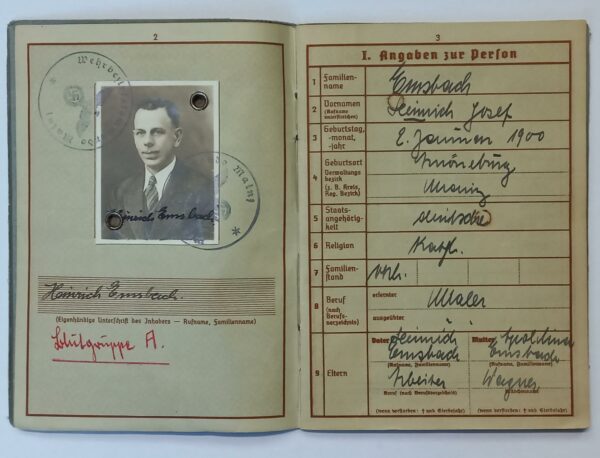 2
Mainz
Heinrich Emsbach
Heinrich Emsbach.
(Eigenhändige Unterschrift des Inhabers — Rufname, Familienname)
Blutgruppe A.
3
I. Angaben zur Person
1 Familien-
name
Emsbach
2 Vornamen
(Rufname
unterstreichen)
Heinrich Josef
3 Geburtstag,
-monat,
-jahr
2. Januar 1900
4 Geburtsort
Verwaltungs-
bezirk
(z. B. Kreis,
Reg. Bezirk)
Mainz
5 Staats-
angehörig-
keit
deutsche
6 Religion
Kath.
7 Familien-
stand
verh.
8 Beruf
(nach
Berufs-
verzeichnis)
erlernter
Maler
ausgeübter
9 Eltern
Vater Heinrich
Emsbach
(Rufname, Familienname)
Arbeiter
Beruf (nach Berufsverzeichnis)
(wenn verstorben: † und Sterbejahr)
Mutter
Emsbach
(Rufname, Familienname)
Wagner
(wenn verstorben: † und Sterbejahr)